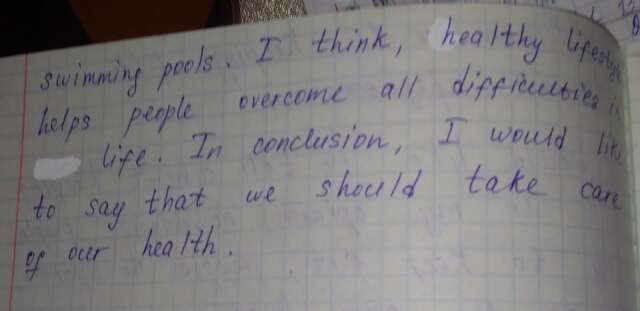 swimming pools. I think, healthy lifestyle
helps people overcome all difficulties in
life. In conclusion, I would like
to say that we should take care
of our health.